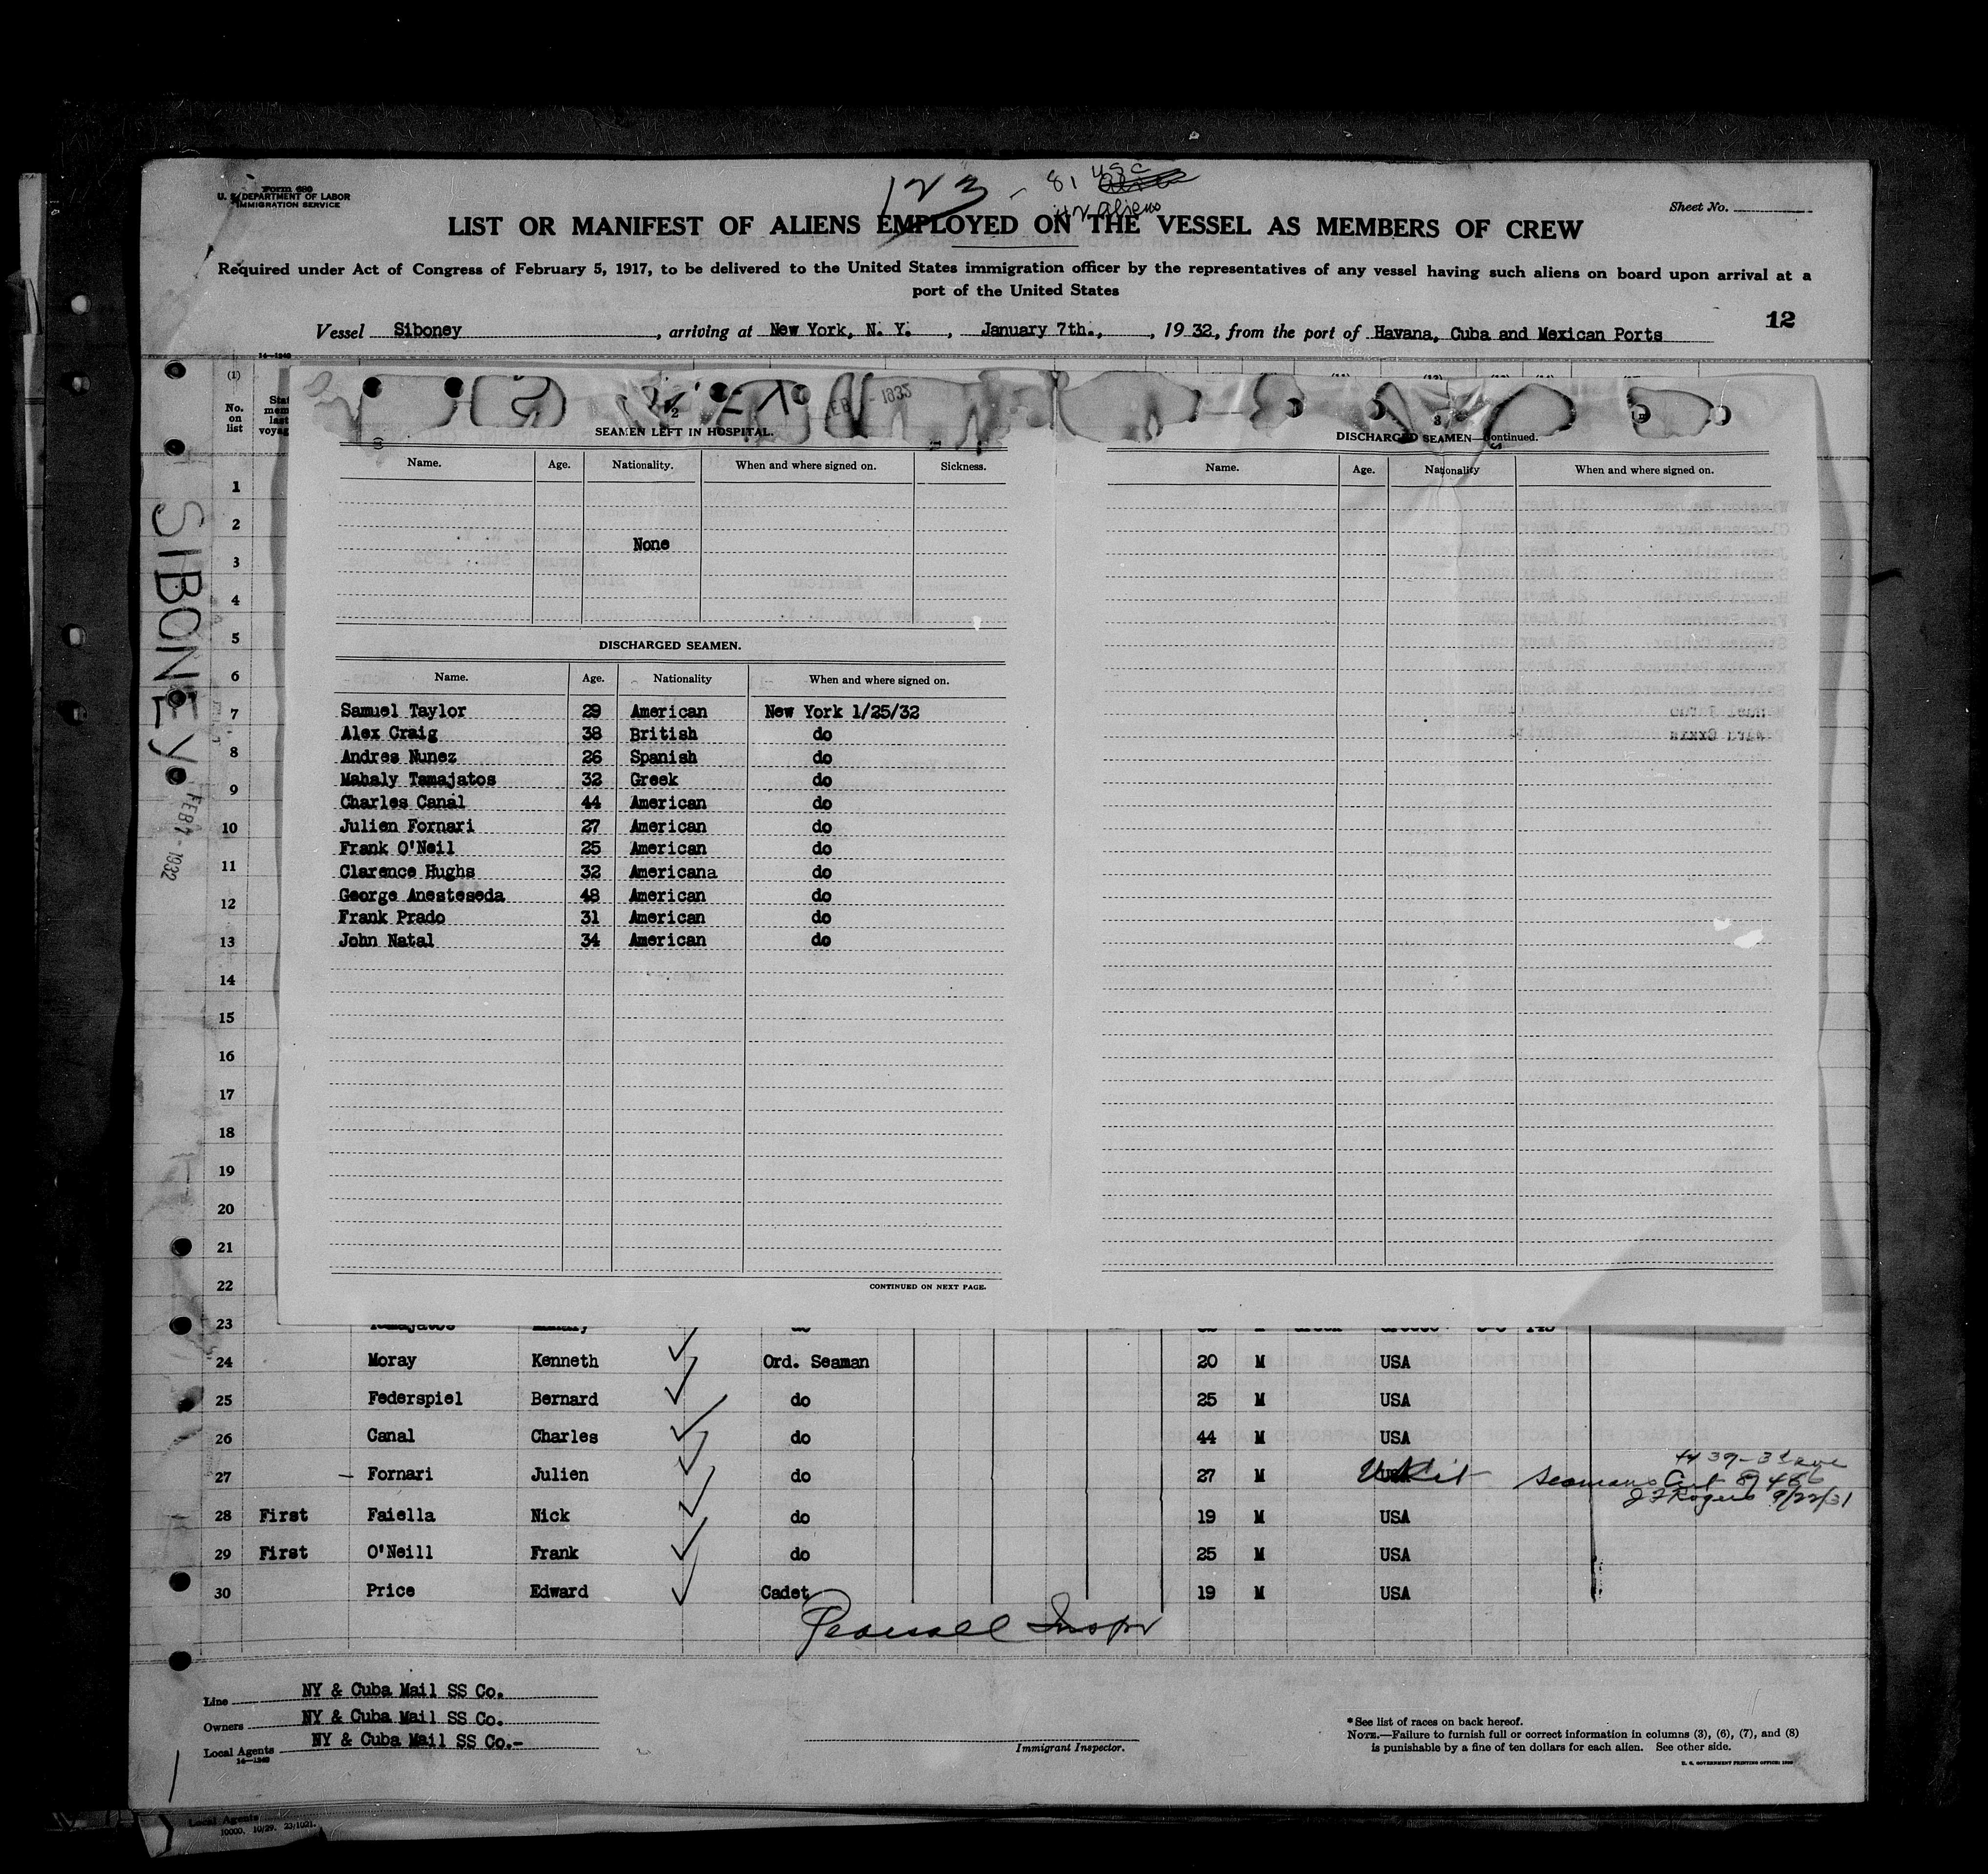 Form 680
U. S. DEPARTMENT OF LABOR
IMMIGRATION SERVICE
123 - 81 USC
42 aliens
Sheet No.
LIST OR MANIFEST OF ALIENS EMPLOYED ON THE VESSEL AS MEMBERS OF CREW
Required under Act of Congress of February 5, 1917, to be delivered to the United States immigration officer by the representatives of any vessel having such aliens on board upon arrival at a
port of the United States
12
Vessel Siboney, arriving at New York, N. Y., January 7th., 1932, from the port of Havana, Cuba and Mexican Ports
14—1240
(1)
No. on list
SIBONEY
FEB 7 - 1932
2
SEAMEN LEFT IN HOSPITAL.
Name. Age. Nationality. When and where signed on. Sickness.
None
DISCHARGED SEAMEN.
Name. Age. Nationality When and where signed on.
Samuel Taylor 29 American New York 1/25/32
Alex Craig 38 British do
Andres Nunez 26 Spanish do
Mahaly Tamajatos 32 Greek do
Charles Canal 44 American do
Julien Fornari 27 American do
Frank O'Neil 25 American do
Clarence Hughs 32 Americana do
George Anesteseda 48 American do
Frank Prado 31 American do
John Natal 34 American do
CONTINUED ON NEXT PAGE.
3
DISCHARGED SEAMEN—Continued.
Name. Age. Nationality When and where signed on.
1
2
3
4
5
6
7
8
9
10
11
12
13
14
15
16
17
18
19
20
21
22
23
24 Moray Kenneth Ord. Seaman 20 M USA
25 Federspiel Bernard do 25 M USA
26 Canal Charles do 44 M USA
27 – Fornari Julien do 27 M
4439-3d Ave
Seamans Cert
J F Rogers 9/22/31
28 First Faiella Nick do 19 M USA
29 First O'Neill Frank do 25 M USA
30 Price Edward Cadet 19 M USA
Pearsall Inspr
Line NY & Cuba Mail SS Co.
Owners NY & Cuba Mail SS Co.
Local Agents NY & Cuba Mail SS Co.-
14—1240
Immigrant Inspector.
*See list of races on back hereof.
NOTE.—Failure to furnish full or correct information in columns (3), (6), (7), and (8)
is punishable by a fine of ten dollars for each alien. See other side.
U. S. GOVERNMENT PRINTING OFFICE:
Local Agents
10000. 10/29. 23/1021.